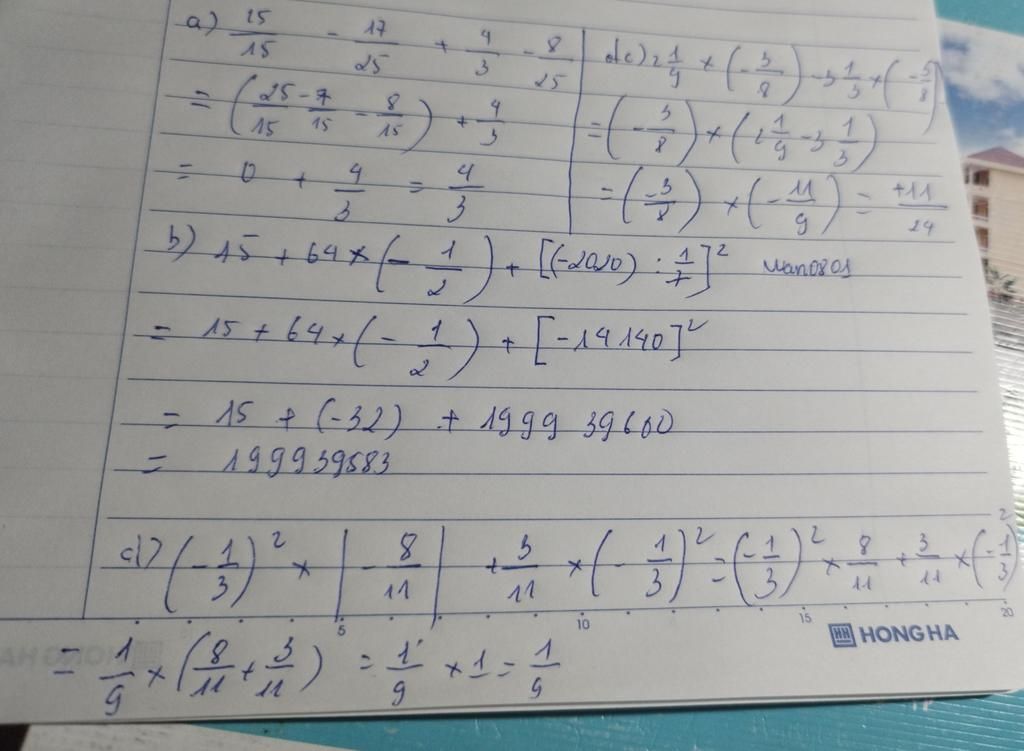 a) 25/15 - 17/25 + 4/3 - 8/25
= (25/15 - 7/15 - 8/15) + 4/3
= 0 + 4/3 = 4/3
c) 2 1/9 × (-3/8) - 3 1/3 × (-3/8)
= (-3/8) × (2 1/9 - 3 1/3)
= (-3/8) × (-11/9) = +11/24
b) 15 + 64 × (-1/2) + [(-2020) : 1/7]²
= 15 + 64 × (-1/2) + [-14140]²
= 15 + (-32) + 1999 39600
= 199939583
d) (-1/3)² × |-8/11| + 3/11 × (-1/3)² = (-1/3)² × 8/11 + 3/11 × (-1/3)²
5 10 15 20
HONG HA
= 1/9 × (8/11 + 3/11) = 1/9 × 1 = 1/9